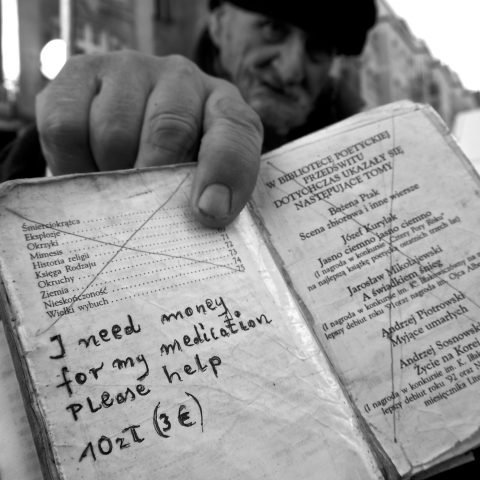 Śmierciokrątca
Eksplozje
Okrzyki
Mimesis
Historia religii 22
Księga Rodzaju 23
Okruchy 24
Ziemia 25
Nieskończoność
Wielki wybuch
I need money
for my medication
please help
10 zł (3 €)
W BIBLIOTECE POETYCKIEJ
PRZEDŚWITU
DOTYCHCZAS UKAZAŁY SIĘ
NASTĘPUJĄCE TOMY
Bożena Ptak
Scena zbiorowa i inne wiersze
Józef Kurylak
Jasno ciemno jasno ciemno
(I nagroda w konkursie „Cztery Pory Roku”
na najlepszą książkę poetycką ostatnich trzech lat)
Jarosław Mikołajewski
A świadkiem śnieg
(I nagroda w konkursie im. K.
lepszy debiut roku
Andrzej Piotrowski
Myjące umarłych
Andrzej Sosnowski
Życie na Korei
(I nagroda w konkursie im. K. Iłła
lepszy debiut roku 92 oraz
miesięcznika